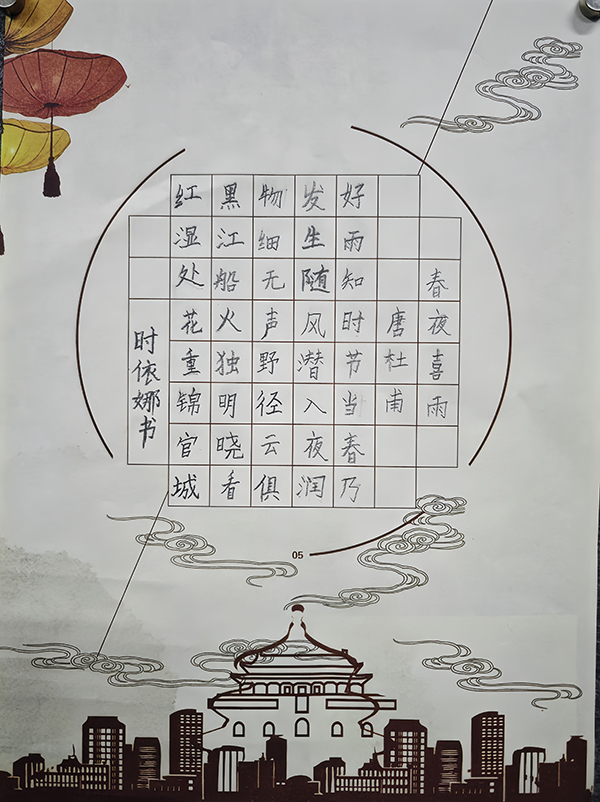 春夜喜雨
唐杜甫
好雨知时节当春乃
发生随风潜入夜润
物细无声野径云俱
黑江船火独明晓看
红湿处花重锦官城
时依娜书
05